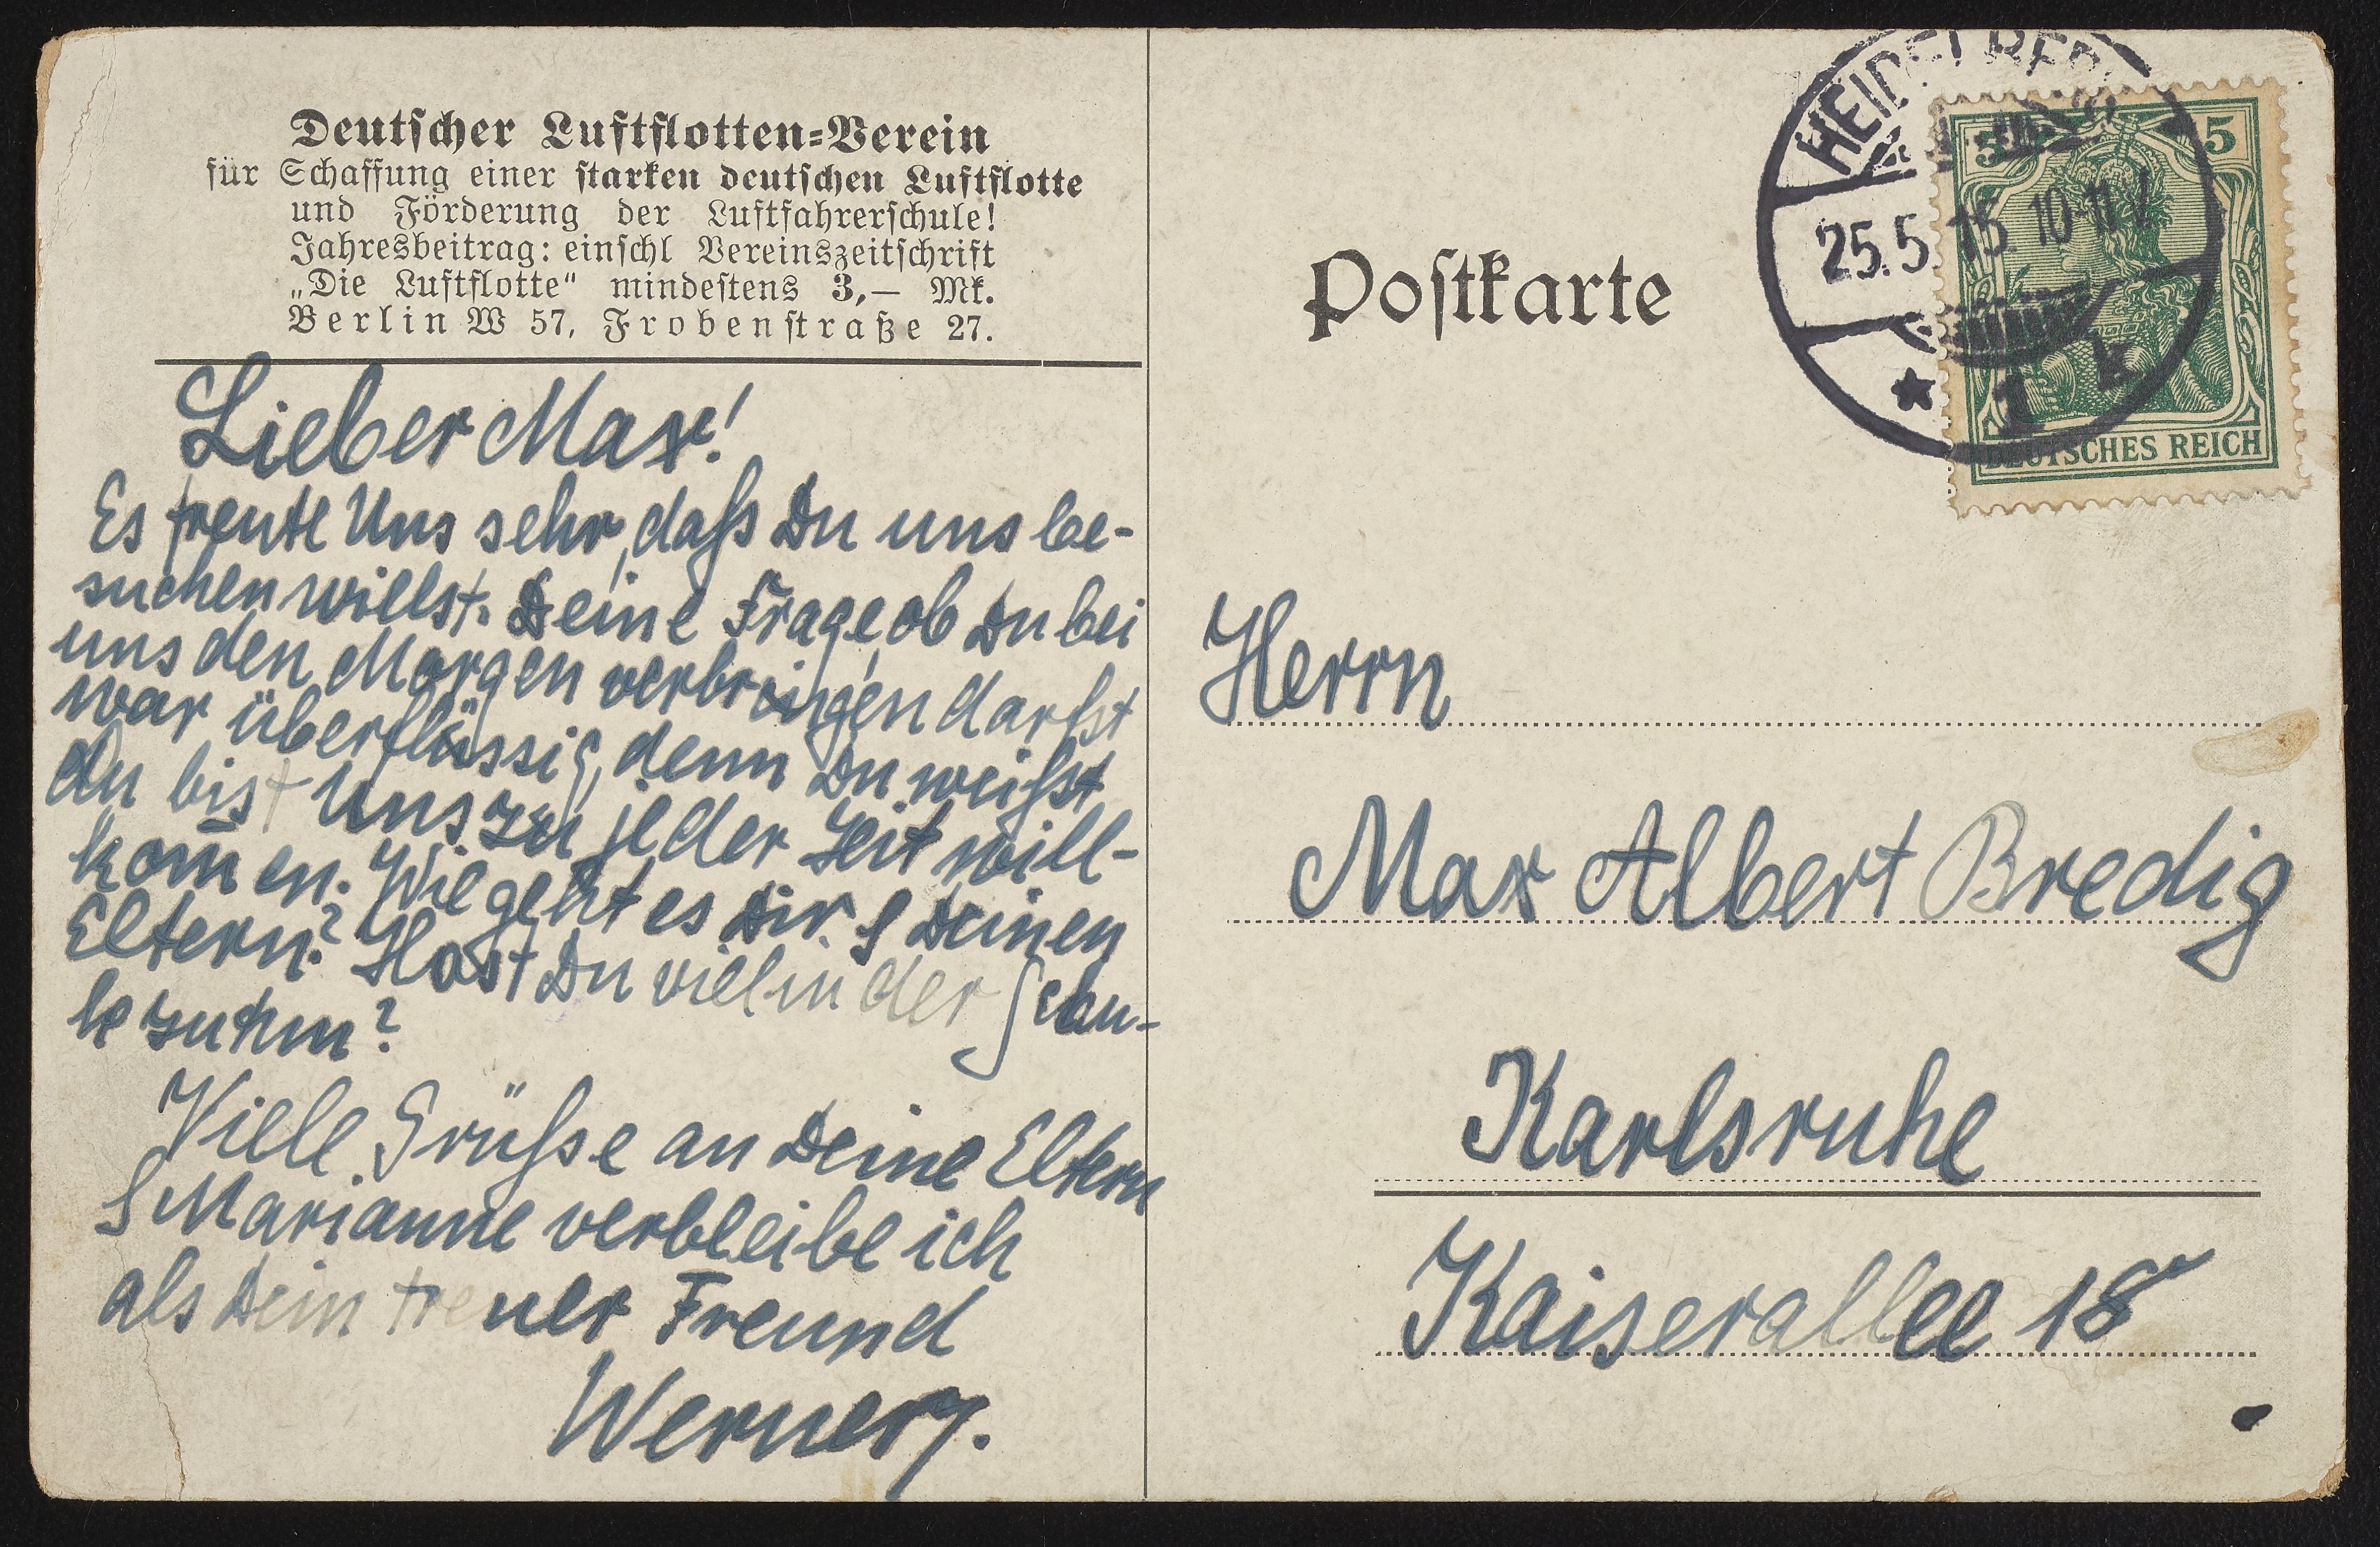 Deutscher Luftflotten=Verein
für Schaffung einer starken deutschen Luftflotte
und Förderung der Luftfahrerschule!
Jahresbeitrag: einschl Vereinszeitschrift
„Die Luftflotte“ mindestens 3,— Mk.
Berlin W 57, Frobenstraße 27.
Lieber Max!
Es freute Uns sehr, daß Du uns be-
suchen willst. Deine Frage, ob Du bei
uns den Morgen verbringen darfst
war überflüssig, denn Du weißt
Du bist Uns zu jeder Zeit will-
kom̄en. Wie geht es Dir & Deinen
Eltern? Hast Du viel in der Schu-
le zu tun?
Viele Grüße an Deine Eltern
& Marianne verbleibe ich
als Dein treuer Freund
Werner
Postkarte
HEIDELBERG
25.5.15 10-11 V
* 1 k
5 5
DEUTSCHES REICH
Herrn
Max Albert Bredig
Karlsruhe
Kaiserallee 18